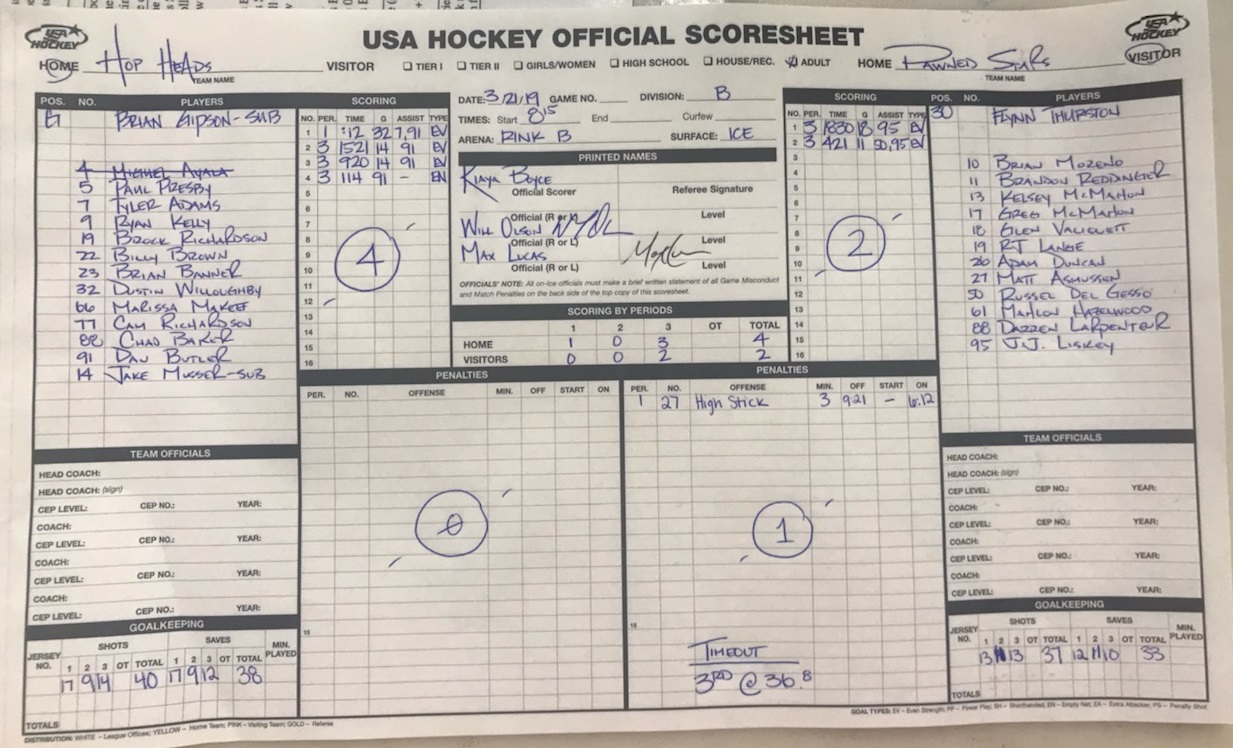 USA HOCKEY OFFICIAL SCORESHEET
USA HOCKEY
USA HOCKEY
HOME HOP HEADS VISITOR
TEAM NAME
☐ TIER I ☐ TIER II ☐ GIRLS/WOMEN ☐ HIGH SCHOOL ☐ HOUSE/REC. ☑ ADULT
HOME PAWNED STARS VISITOR
TEAM NAME
POS. NO. PLAYERS
G BRIAN GIPSON-SUB
4 MIGUEL AYALA
5 PAUL PRESBY
7 TYLER ADAMS
9 RYAN KELLY
19 BROCK RICHARDSON
22 BILLY BROWN
23 BRIAN BANNER
32 DUSTIN WILLOUGHBY
66 MARISSA
77 CAM RICHARDSON
88 CHAD BAKER
91 DAN BUTLER
14 JAKE MUSSER-SUB
SCORING
NO. PER. TIME G ASSIST TYPE
1 1 :12 32 7,91 EV
2 3 1521 14 91 EV
3 3 920 14 91 EV
4 3 114 91 - EN
5
6
7
8
9
10
11
12
13
14
15
16
4
DATE: 3/21/19 GAME NO. DIVISION: B
TIMES: Start 8:15 End Curfew
ARENA: RINK B SURFACE: ICE
PRINTED NAMES
KIAYA BOYCE
Official Scorer Referee Signature
Official (R or L) Level
WILL OLSON
Official (R or L) Level
MAX LUCAS
Official (R or L) Level
OFFICIALS' NOTE: All on-ice officials must make a brief written statement of all Game Misconduct
and Match Penalties on the back side of the top copy of this scoresheet.
SCORING BY PERIODS
1 2 3 OT TOTAL
HOME 1 0 3 4
VISITORS 0 0 2 2
SCORING
NO. PER. TIME G ASSIST TYPE
1 3 1830 18 95 EV
2 3 421 11 50,95 EV
3
4
5
6
7
8
9
10
11
12
13
14
15
16
2
POS. NO. PLAYERS
30 FLYNN THURSTON
10 BRIAN MOZENO
11 BRANDON REDDINGER
13 KELSEY McMAHON
17 GREG McMAHON
18 GLEN
19 RJ LANGE
26 ADAM DUNCAN
27 MATT ASMUSSEN
50 RUSSEL DEL GESSO
61 MAHLON HAZELWOOD
88 DARREN CARPENTER
95 J.J. LISKEY
PENALTIES
PER. NO. OFFENSE MIN. OFF START ON
0
15
PENALTIES
PER. NO. OFFENSE MIN. OFF START ON
1 27 High Stick 3 921 - 6:12
1
15
TIMEOUT
3RD @ 36.8
TEAM OFFICIALS
HEAD COACH:
HEAD COACH: (sign)
CEP LEVEL: CEP NO.: YEAR:
COACH:
CEP LEVEL: CEP NO.: YEAR:
COACH:
CEP LEVEL: CEP NO.: YEAR:
COACH:
CEP LEVEL: CEP NO.: YEAR:
GOALKEEPING
SHOTS SAVES
JERSEY NO. 1 2 3 OT TOTAL 1 2 3 OT TOTAL MIN. PLAYED
17 9 14 40 17 9 12 38
TOTALS
TEAM OFFICIALS
HEAD COACH:
HEAD COACH: (sign)
CEP LEVEL: CEP NO.: YEAR:
COACH:
CEP LEVEL: CEP NO.: YEAR:
COACH:
CEP LEVEL: CEP NO.: YEAR:
COACH:
CEP LEVEL: CEP NO.: YEAR:
GOALKEEPING
SHOTS SAVES
JERSEY NO. 1 2 3 OT TOTAL 1 2 3 OT TOTAL MIN. PLAYED
13 11 13 37 12 11 10 33
TOTALS
DISTRIBUTION: WHITE – League Offices; YELLOW – Home Team; PINK – Visiting Team; GOLD – Referee
GOAL TYPES: EV – Even Strength, PP – Power Play, SH – Shorthanded, EN – Empty Net, EA – Extra Attacker, PS – Penalty Shot